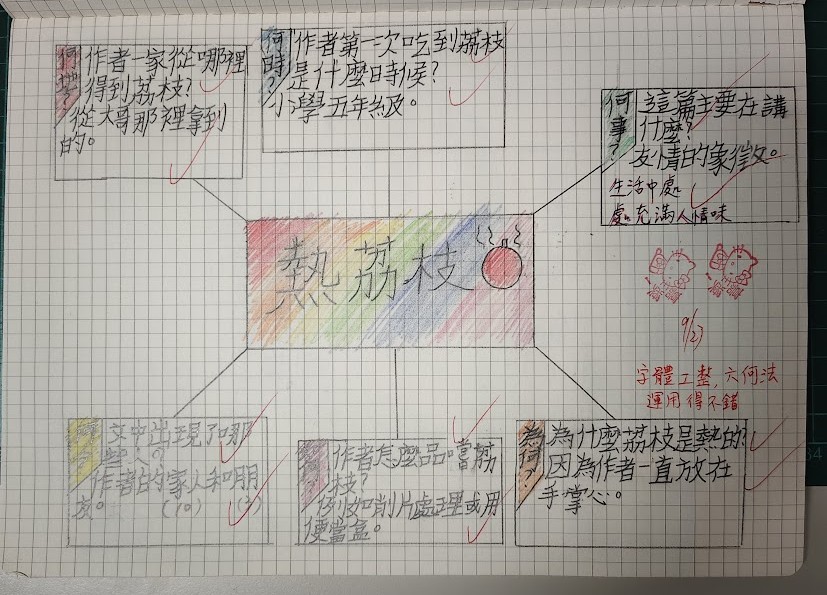 何地?
作者一家從哪裡
得到荔枝?
從大哥那裡拿到
的。
何時?
作者第一次吃到荔枝
是什麼時候?
小學五年級。
何事?
這篇主要在講
什麼?
友情的象徵。
生活中處
處充滿人情味
熱荔枝
9/27
字體工整,六何法
運用得不錯
文中出現了哪
些人?
作者的家人和朋
友。 (10) (3)
作者怎麼品嚐荔
枝?
例如削片處理或用
便當盒。
為何?
為什麼荔枝是熱的?
因為作者一直放在
手掌心。